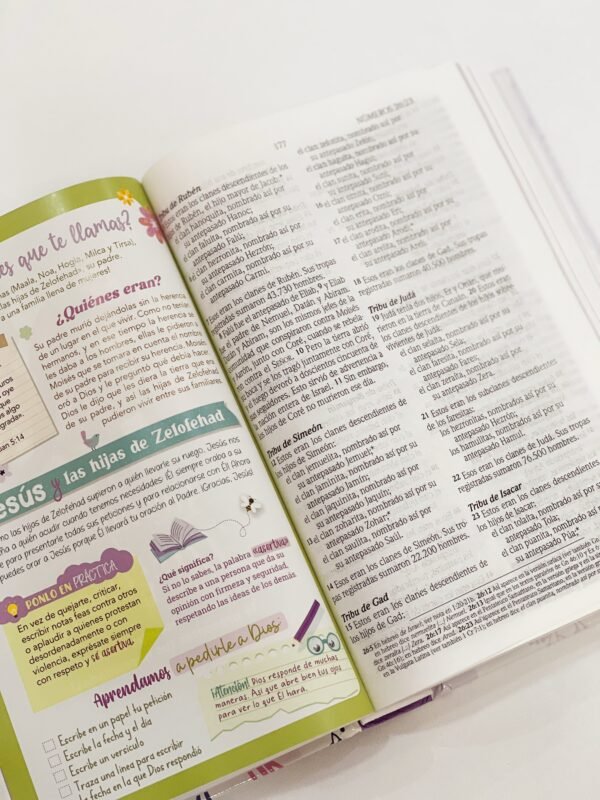 es que te llamas?
(Maala, Noa, Hogla, Milca y Tirsa),
las hijas de Zelofehad», su padre.
a una familia llena de mujeres!
¿Quiénes eran?
Su padre murió dejándolas sin la herencia
de un lugar en el que vivir. Como no tenían
hermanos, y en ese tiempo la herencia se
le daba a los hombres, ellas le pidieron a
Moisés que se tomara en cuenta el nombre
de su padre para recibir su herencia. Moisés
oró a Dios y le preguntó qué debía hacer.
Dios le dijo que les diera la tierra que era
de su padre, y así las hijas de Zelofehad
pudieron vivir entre sus familiares.
uan 5.14
Jesús y las hijas de Zelofehad
omo las hijas de Zelofehad supieron a quién llevarle su ruego, Jesús nos
a quién acudir cuando tenemos necesidades. Él siempre oraba a su
para presentarle todas sus peticiones y para relacionarse con Él. Ahora
puedes orar a Jesús porque Él llevará tu oración al Padre. ¡Gracias, Jesús!
PONLO EN PRÁCTICA
En vez de quejarte, criticar,
escribir notas feas contra otros
o aplaudir a quienes protestan
desordenadamente o con
violencia, exprésate siempre
con respeto y sé asertiva.
¿Qué significa?
Si no lo sabes, la palabra asertiva
describe a una persona que da su
opinión con firmeza y seguridad,
respetando las ideas de los demás.
Aprendamos a pedirle a Dios
Escribe en un papel tu petición
Escribe la fecha y el día
Escribe un versículo
Traza una línea para escribir
la fecha en la que Dios respondió
¡Atención! Dios responde de muchas
maneras. Así que abre bien tus ojos
para ver lo que Él hará.
177
NÚMEROS 26:23
Tribu de Rubén
Estos eran los clanes descendientes de los
de Rubén, el hijo mayor de Jacob:
el clan hanoquita, nombrado así por
su antepasado Hanoc;
el clan faluita, nombrado así por su
antepasado Falú;
el clan hezronita, nombrado así por
su antepasado Hezrón;
el clan carmita, nombrado así por su
antepasado Carmi.
Esos eran los clanes de Rubén. Sus tropas
registradas sumaron 43.730 hombres.
Falú fue el antepasado de Eliab, 9 y Eliab
fue el padre de Nemuel, Datán y Abiram.
Datán y Abiram, son los mismos jefes de la
comunidad que conspiraron contra Moisés
en contra del Señor. 10 Pero la tierra abrió
boca y se los tragó juntamente con Coré,
el fuego devoró a doscientos cincuenta de
seguidores. Esto sirvió de advertencia a
la nación entera de Israel. 11 Sin embargo,
los hijos de Coré no murieron ese día.
Tribu de Simeón
12 Estos eran los clanes descendientes de
los hijos de Simeón:
el clan jemuelita, nombrado así por
su antepasado Jemuel;
el clan jaminita, nombrado así por
su antepasado Jamín;
el clan jaquinita, nombrado así por
su antepasado Jaquín;
13 el clan zoharita, nombrado así por su
antepasado Zohar;
el clan saulita, nombrado así por su
antepasado Saúl.
14 Esos eran los clanes de Simeón. Sus tro-
pas registradas sumaron 22.200 hombres.
Tribu de Gad
15 Estos eran los clanes descendientes de
los hijos de Gad:
el clan zefonita, nombrado así por
su antepasado Zefón;
el clan haguita, nombrado así por su
antepasado Hagui;
el clan sunita, nombrado así por su
antepasado Suni;
16 el clan oznita, nombrado así por su
antepasado Ozni;
el clan erita, nombrado así por su
antepasado Eri;
17 el clan arodita, nombrado así por su
antepasado Arodi;
el clan arelita, nombrado así por su
antepasado Areli.
18 Esos eran los clanes de Gad. Sus tropas
registradas sumaron 40.500 hombres.
Tribu de Judá
19 Judá tenía dos hijos, Er y Onán, que mu-
rieron en la tierra de Canaán. 20 Estos eran
los clanes descendientes de los hijos sobre-
vivientes de Judá:
el clan selaíta, nombrado así por su
antepasado Selá;
el clan faresita, nombrado así por su
antepasado Fares;
el clan zeraíta, nombrado así por su
antepasado Zera.
21 Estos eran los subclanes descendientes
de los faresitas:
los hezronitas, nombrados así por su
antepasado Hezrón;
los hamulitas, nombrados así por su
antepasado Hamul.
22 Esos eran los clanes de Judá. Sus tropas
registradas sumaron 76.500 hombres.
Tribu de Isacar
23 Estos eran los clanes descendientes de
los hijos de Isacar:
el clan tolaíta, nombrado así por su
antepasado Tola;
el clan puanita, nombrado así por
su antepasado Púa;